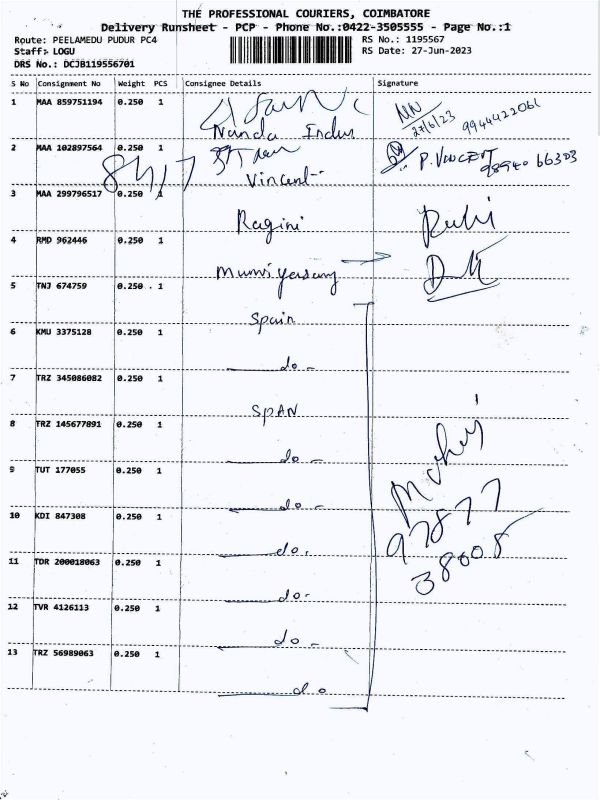 THE PROFESSIONAL COURIERS, COIMBATORE
Delivery Runsheet - PCP - Phone No.:0422-3505555 - Page No.:1
Route: PEELAMEDU PUDUR PC4
RS No.: 1195567
Staff: LOGU
RS Date: 27-Jun-2023
DRS No.: DCJB119556701
S No Consignment No Weight PCS Consignee Details Signature
1 MAA 859751194 0.250 1
27/6/23 9944422061
Nanda Indus
2 MAA 102897564 0.250 1
P. VINCENT
98940 66303
Vincent
3 MAA 299796517 0.250 1
Ragini
4 RMD 962446 0.250 1
5 TNJ 674759 0.250 1
Spain
6 KMU 3375128 0.250 1
do
7 TRZ 345086082 0.250 1
SPAN
8 TRZ 145677891 0.250 1
do
9 TUT 177055 0.250 1
do
10 KDI 847308 0.250 1
do
97877
38008
11 TDR 200018063 0.250 1
do
12 TVR 4126113 0.250 1
do
13 TRZ 56989063 0.250 1
do